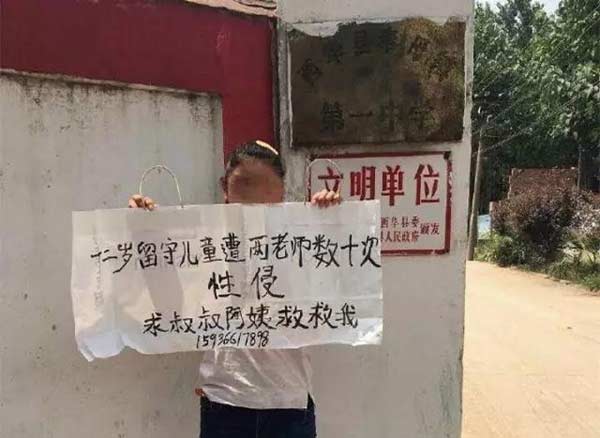 西华县奉母镇
第一中学
文明单位
西华县委
县人民政府 颁发
十二岁留守儿童遭两老师数十次
性侵
求叔叔阿姨救救我
15936617898